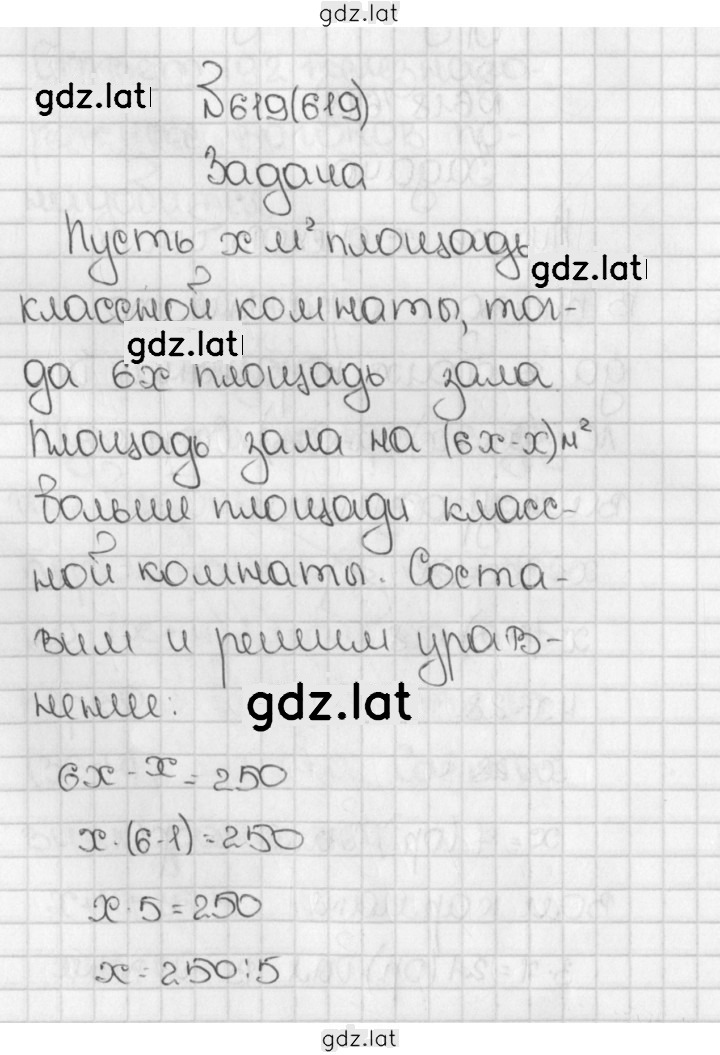 gdz.lat
gdz.lat
№619(619)
Задача
Пусть x м² площадь
gdz.lat
классной комнаты, тог-
gdz.lat
да 6x площадь зала
Площадь зала на (6x-x)м²
больше площади класс-
ной комнаты. Соста-
вим и решим урав-
нение:
gdz.lat
6x - x = 250
x·(6-1) = 250
x·5 = 250
x = 250:5
gdz.lat